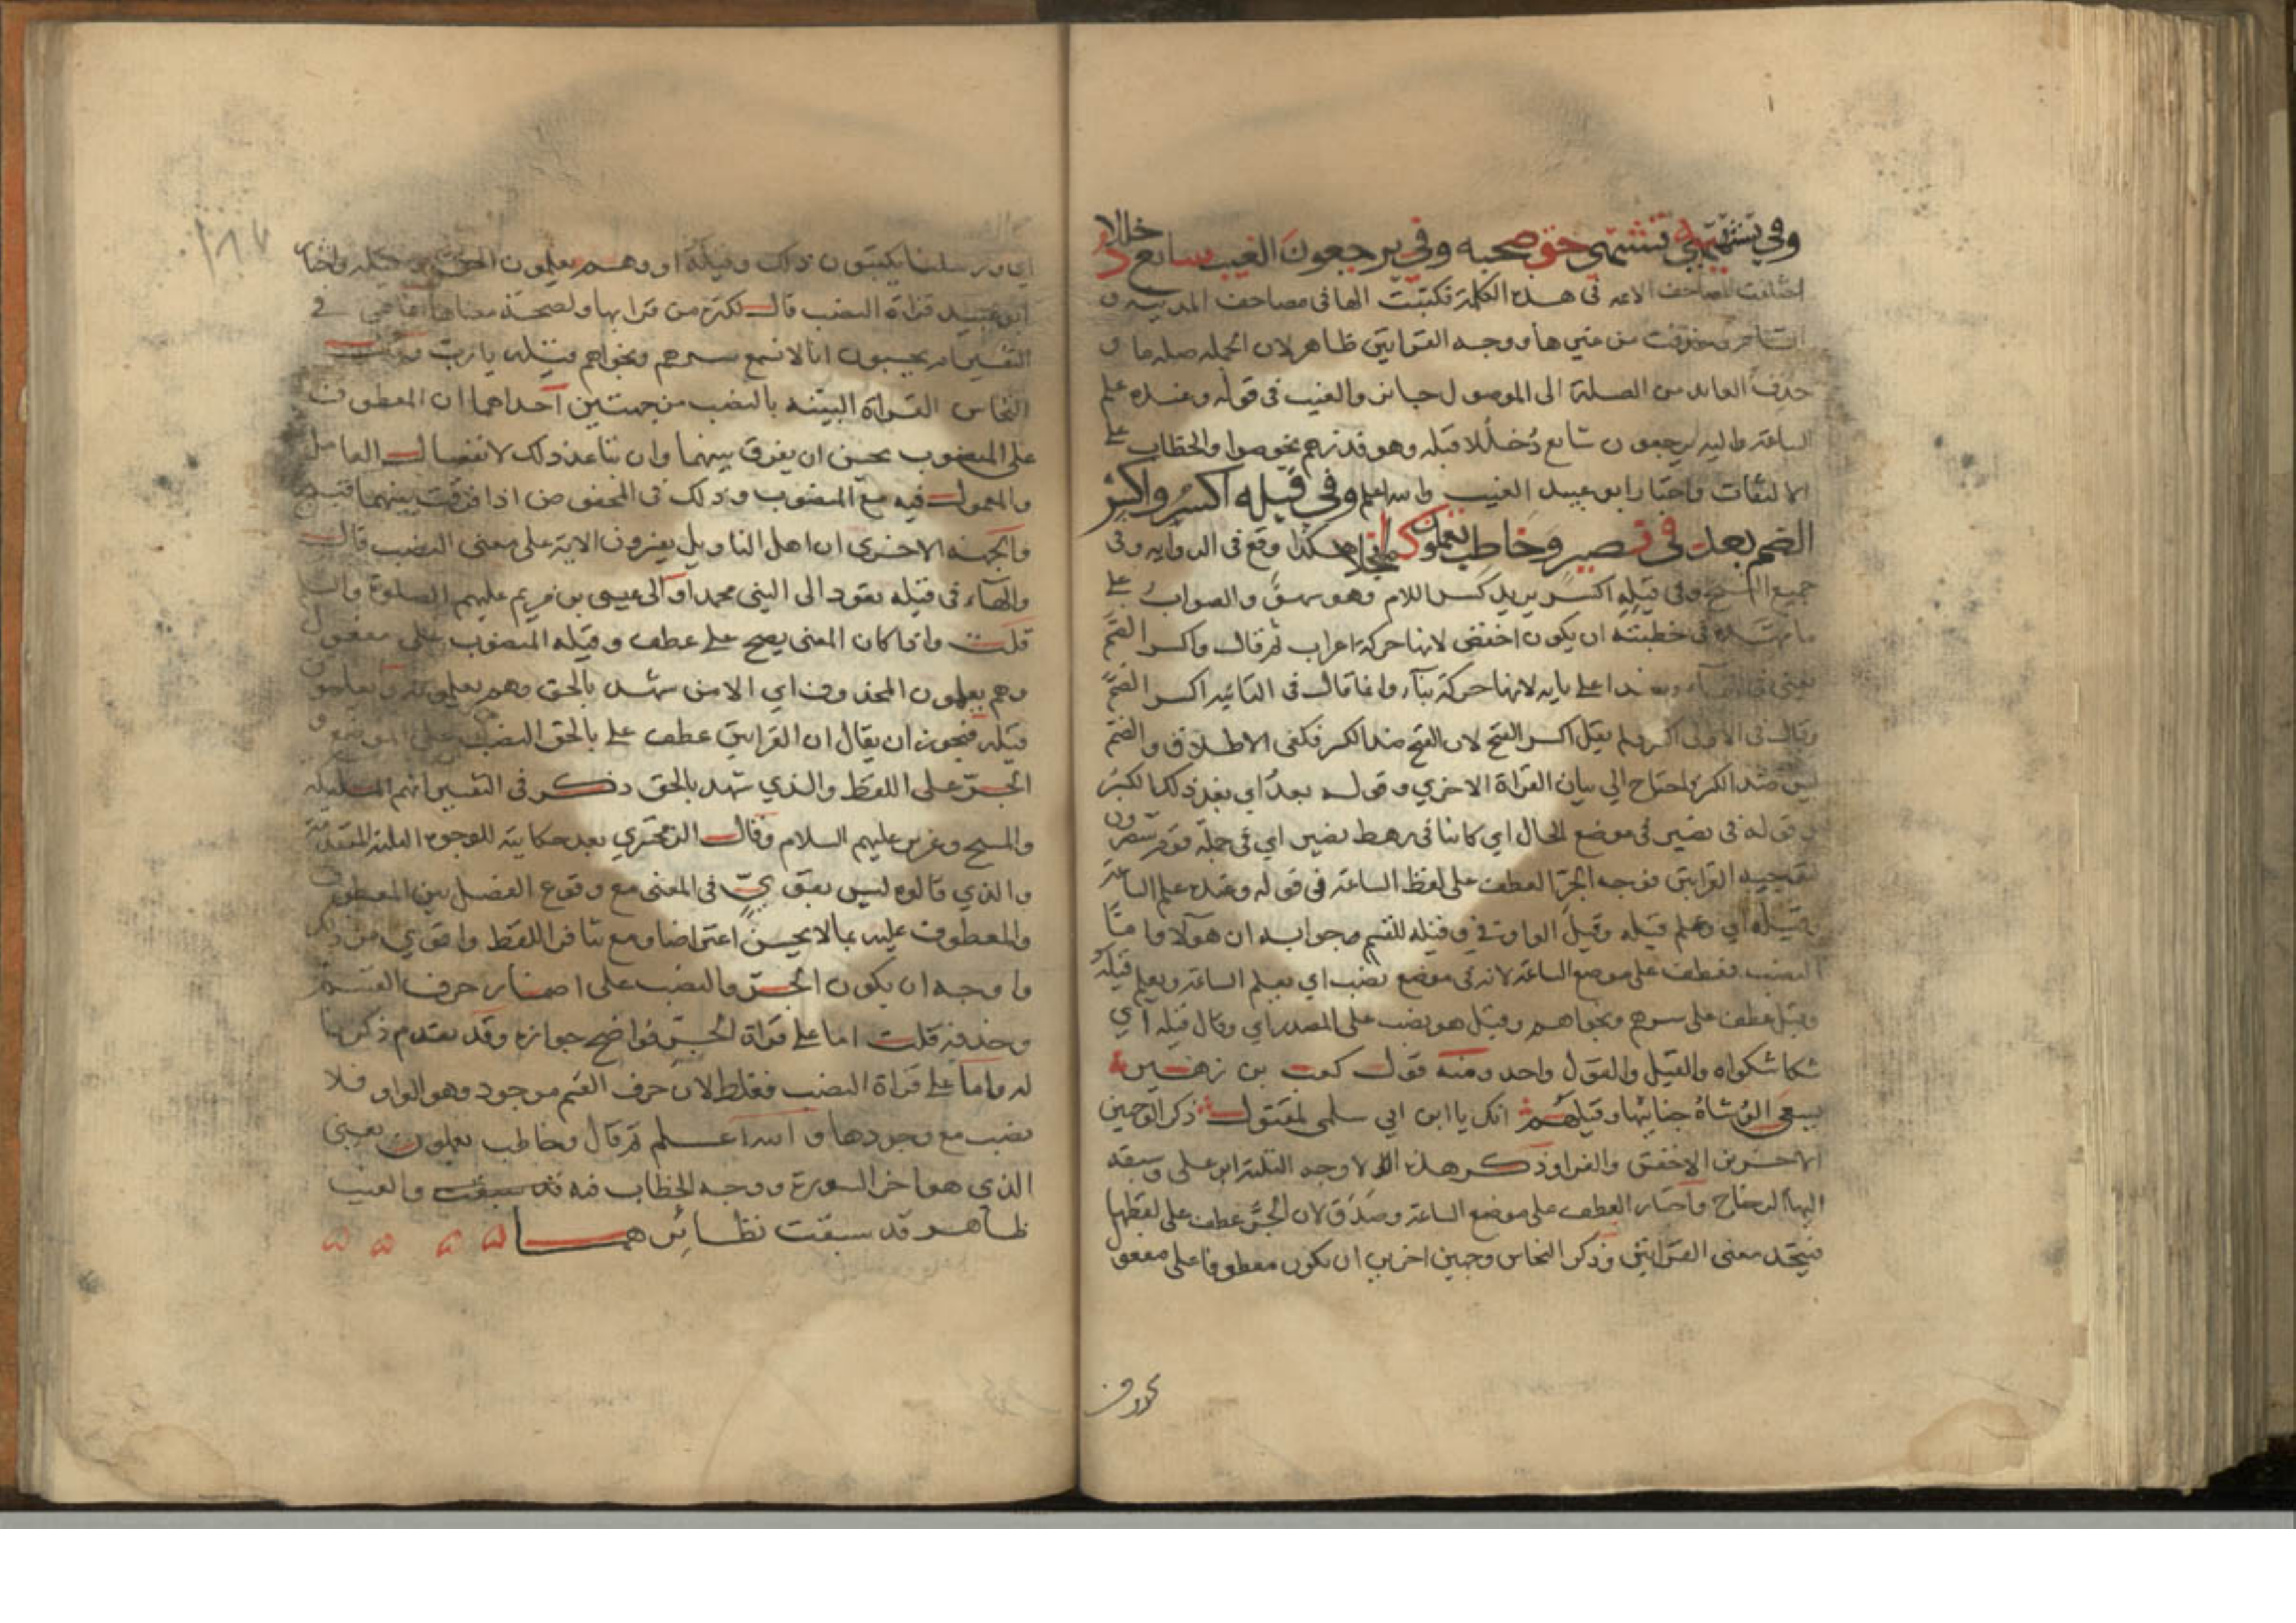 وفي تشتهيه تشتهي حق صحبه وفي يرجعون الغيب شايع دخللا
اختلفت المصاحف الائمه في هذه الكلمة فكتبت الها في مصاحف المدينة و
الشام وحذفت من غيرها ووجه القراتين ظاهر لان الجمله صله ما و
حذف العايد من الصلة الى الموصول جايز والغيب في قوله وعنده علم
الساعة واليه يرجعون شايع دخللا قبله وهو فذرهم يخوضوا والخطاب على
الالتفات واختار ابو عبيد الغيب والله اعلم وفي قيله اكسر واكسر
الضم بعد في نصير وخاطب تعلمون كما انجلا هكذا وقع في الروايه وفي
جميع النسخ وفي قيله اكسر يريد كسر اللام وهو سهو والصواب على
ما مهده في خطبته ان يكون اخفض لانها حركة اعراب ثم قال واكسر الضم
يعني في الهاء وهذا على بابه لانها حركة بناء وانما قال في الثانيه اكسر الضم
وقال في الاولى اكسر ولم يقل اكسر الفتح لان الفتح ضد الكسر فكفى الاطلاق والضم
ليس ضد الكسر فاحتاج الي بيان القراة الاخري وقوله بعد اي بعد ذلك الكسر
وقوله في نصير في موضع الحال اي كاينا في رهط نصير اي في جملة قوم ينصرون
توجيه القراتين فوجه الجر العطف على لفظ الساعة في قوله وعنده علم الساعة
وقيله اي وعلم قيله وقيل الواو في وقيله للقسم وجوابه ان هولاء واما
النصب فعطف على موضع الساعة لانه في موضع نصب اي يعلم الساعة ويعلم قيله
وقيل عطف على سرهم ونجواهم وقيل هو نصب على المصدر اي وقال قيله اي
شكا شكواه والقيل والقول واحد ومنه قول كعب بن زهير
يسعى الوشاة جنابيها وقيلهم انك يا ابن ابي سلمى لمقتول ذكر الوجهين
الاخيرين الاخفش والفرا وذكر هذه الاوجه الثلثة ابو على وسبقه
اليها الزجاج واختار العطف على موضع الساعة وصدق لان الجر عطف على لفظها
فيتحد معنى القراتين وذكر النحاس وجهين اخرين ان يكون معطوفا على مفعول
محذوف
١٨٧
اي ورسلنا يكتبون ذلك وقيله او وهم يعلمون الحق وقيله واختار
ابو عبيد قراة النصب قال لكثرة من قرا بها ولصحة معناها انما هي في
التفسير ام يحسبون انا لا نسمع سرهم ونجواهم وقيله يا رب وقال
النحاس القراة البينه بالنصب من جهتين احداهما ان المعطوف
على المنصوب يحسن ان يفرق بينهما وان تباعد ذلك لانفصال العامل
والمعمول فيه مع المنصوب وذلك في المخفوض اذا فرقت بينهما قبيح
والجهه الاخرى ان اهل التاويل يفسرون الاية على معنى النصب قال
والهاء في قيله تعود الى النبي محمد او الى عيسى بن مريم عليهم الصلوة والسلام
قلت واذا كان المعنى يصح على عطف وقيله المنصوب على مفعول
وهم يعلمون المحذوف اي الا من شهد بالحق وهم يعلمونه ويعلمون
قيله فيجوز ان يقال ان القراتين عطف على بالحق النصب على الموضع و
الجر على اللفظ والذي شهد بالحق ذكر في التفسير انهم الملائكه
والمسيح وعزير عليهم السلام وقال الزمخشري بعد حكايته للوجوه الثلثة المتقدمة
والذي قالوه ليس بقوي في المعنى مع وقوع الفصل بين المعطوف
والمعطوف عليه بما لا يحسن اعتراضا ومع تنافر اللفظ واقوي من ذلك
واوجه ان يكون الجر والنصب على اضمار حرف القسم
وحذفه قلت اما على قراة الجر فواضح جوازه وقد تقدم ذكرنا
له واما على قراة النصب فغلط لان حرف القسم موجود وهو الواو فلا
نصب مع وجودها والله اعلم ثم قال وخاطب تعلمون يعني
الذي هو اخر السورة ووجه الخطاب فيه قد سبقت والغيب
ظاهر قد سبقت نظائرهما